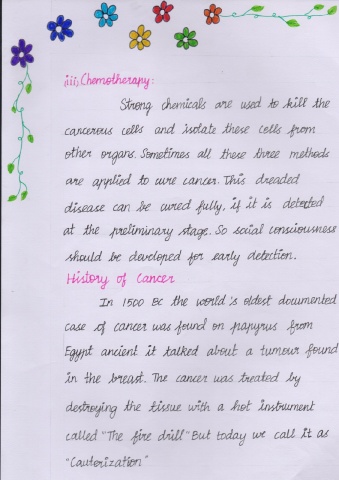 iii, Chemotherapy:
Strong chemicals are used to kill the
cancerous cells and isolate these cells from
other organs. Sometimes all these three methods
are applied to cure cancer. This dreaded
disease can be cured fully, if it is detected
at the preliminary stage. So social consciousness
should be developed for early detection.
History of Cancer
In 1500 BC the world's oldest documented
case of cancer was found on papyrus from
Egypt ancient it talked about a tumour found
in the breast. The cancer was treated by
destroying the tissue with a hot instrument
called "The fire drill" But today we call it as
"Cauterization"